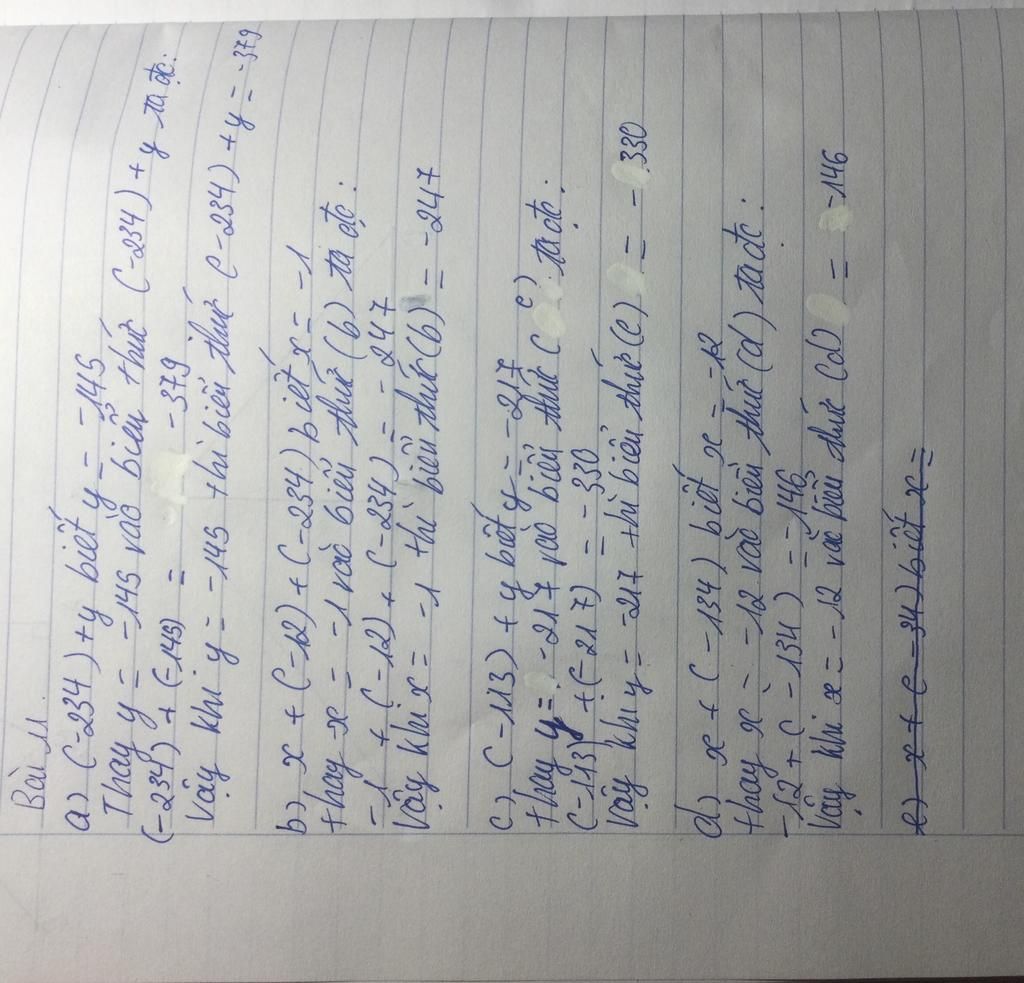 Bài 11.
a) (-234) + y biết y = -145
Thay y = -145 vào biểu thức (-234) + y ta đc:
(-234) + (-145) = -379
Vậy khi y = -145 thì biểu thức (-234) + y = -379
b) x + (-12) + (-234) biết x = -1
thay x = -1 vào biểu thức (b) ta đc:
-1 + (-12) + (-234) = -247
Vậy khi x = -1 thì biểu thức (b) = -247
c) (-113) + y biết y = -217
thay y = -217 vào biểu thức (c) ta đc:
(-113) + (-217) = -330
Vậy khi y = -217 thì biểu thức (c) = -330
d) x + (-134) biết x = -12
thay x = -12 vào biểu thức (d) ta đc:
-12 + (-134) = -146
Vậy khi x = -12 vào biểu thức (d) = -146
e) x + (-34) biết x =